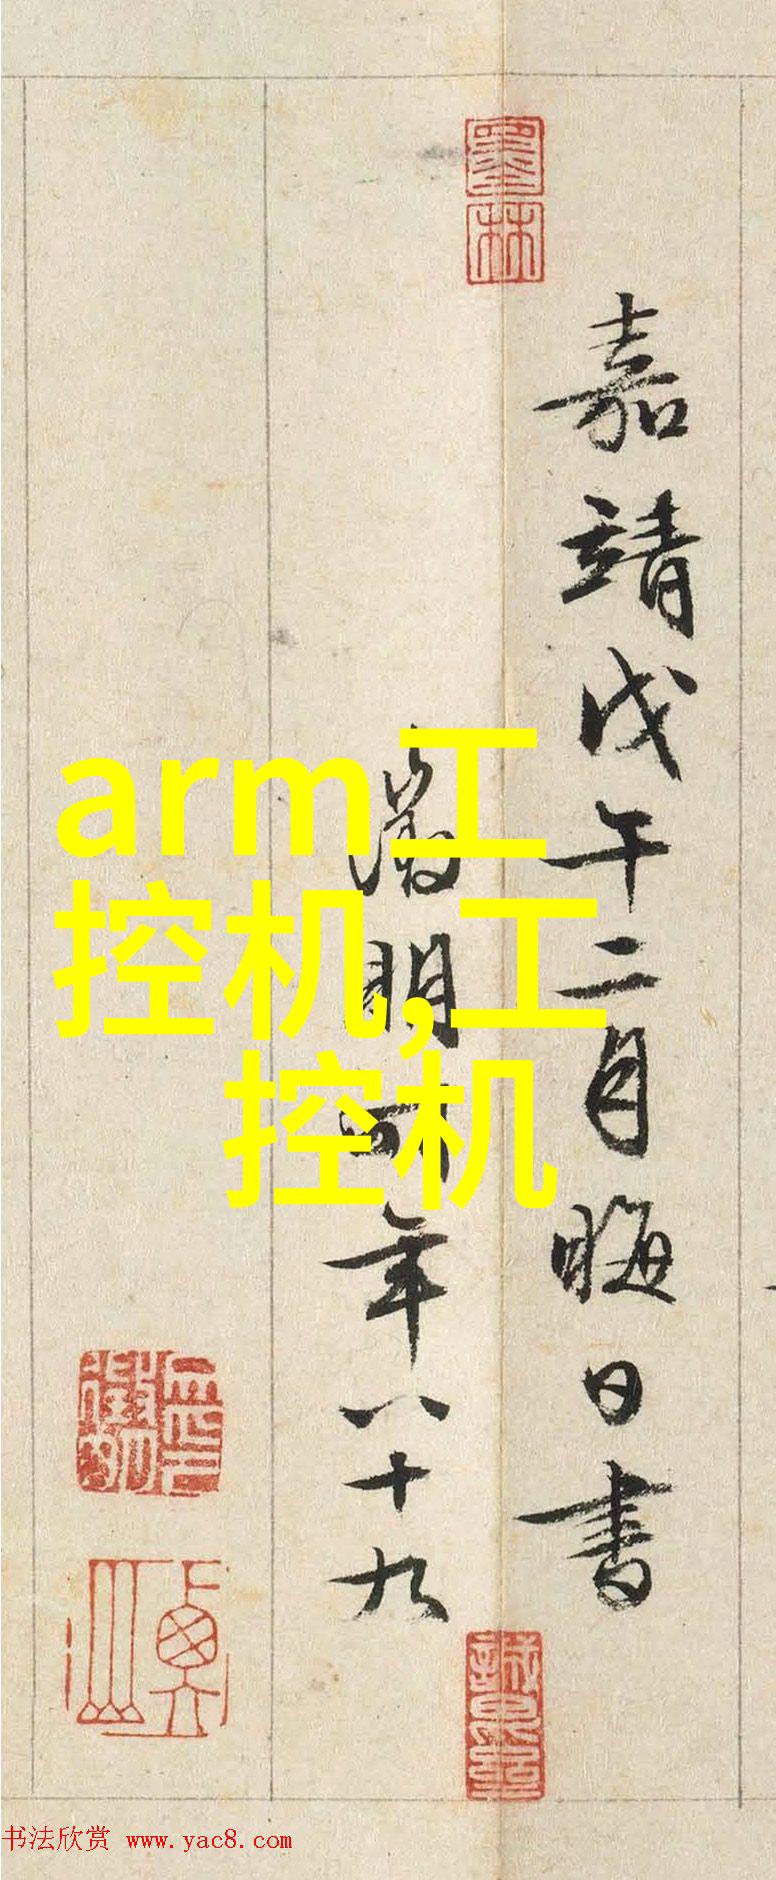 嘉靖戊午二月晦日书
徵明时年八十九
墨林
arm工
控机,工
控机
书法欣赏 www.yac8.com